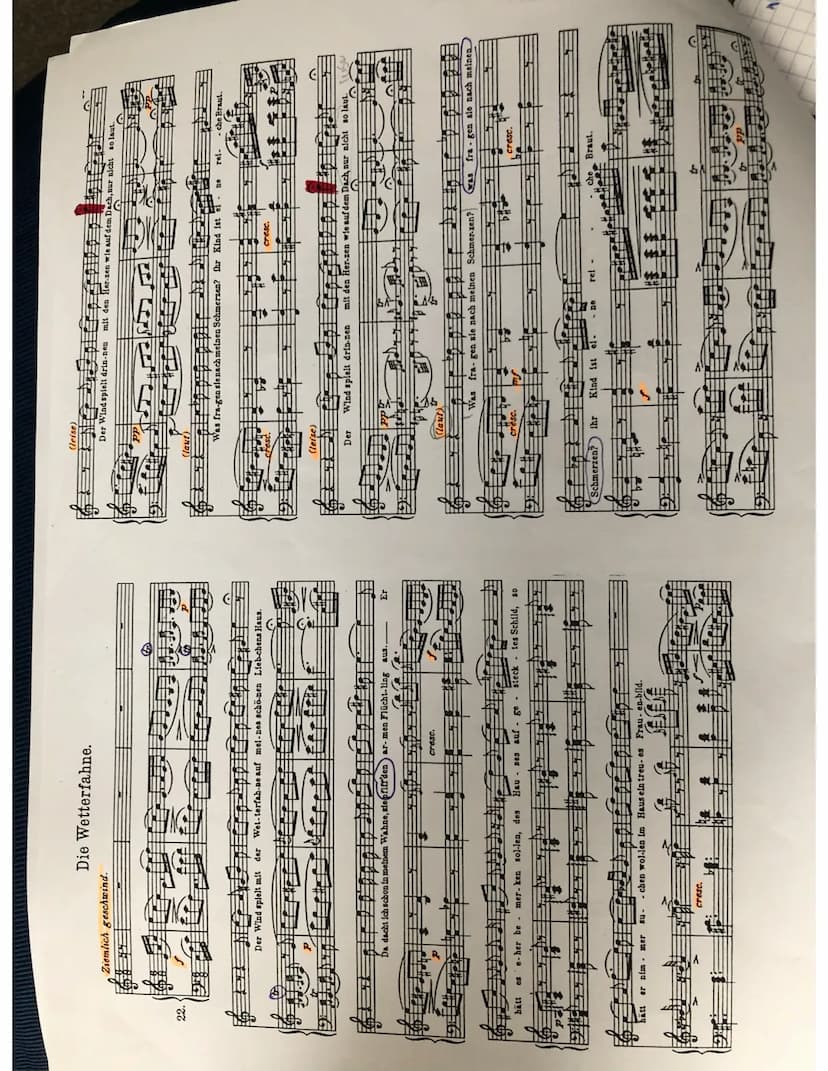 Die Wetterfahne.
Ziemlich geschwind.
22.
f
p
Der Wind spielt mit der Wet-terfah-ne auf mei-nes schö-nen Liebchens Haus.
p
Da dacht ich schon in meinem Wahne, sie pfiff den ar-men Flücht-ling aus. Er
p cresc. f
hätt es e-her be-mer-ken sol-len, des Hau-ses auf-ge-steck-tes Schild, so
p
hätt er nim-mer su-chen wol-len im Haus ein treu-es Frau-en-bild.
cresc. f
(leise)
Der Wind spielt drin-nen mit den Her-zen wie auf dem Dach, nur nicht so laut.
pp pp
(laut)
Was fra-gen sie nach meinen Schmerzen? Ihr Kind ist ei-ne rei-che Braut.
cresc. cresc.
(leise)
Der Wind spielt drin-nen mit den Her-zen wie auf dem Dach, nur nicht so laut.
pp
(laut)
Was fra-gen sie nach meinen Schmer-zen? was fra-gen sie nach meinen
cresc. mf cresc.
Schmerzen? Ihr Kind ist ei-ne rei-che Braut.
f
pp